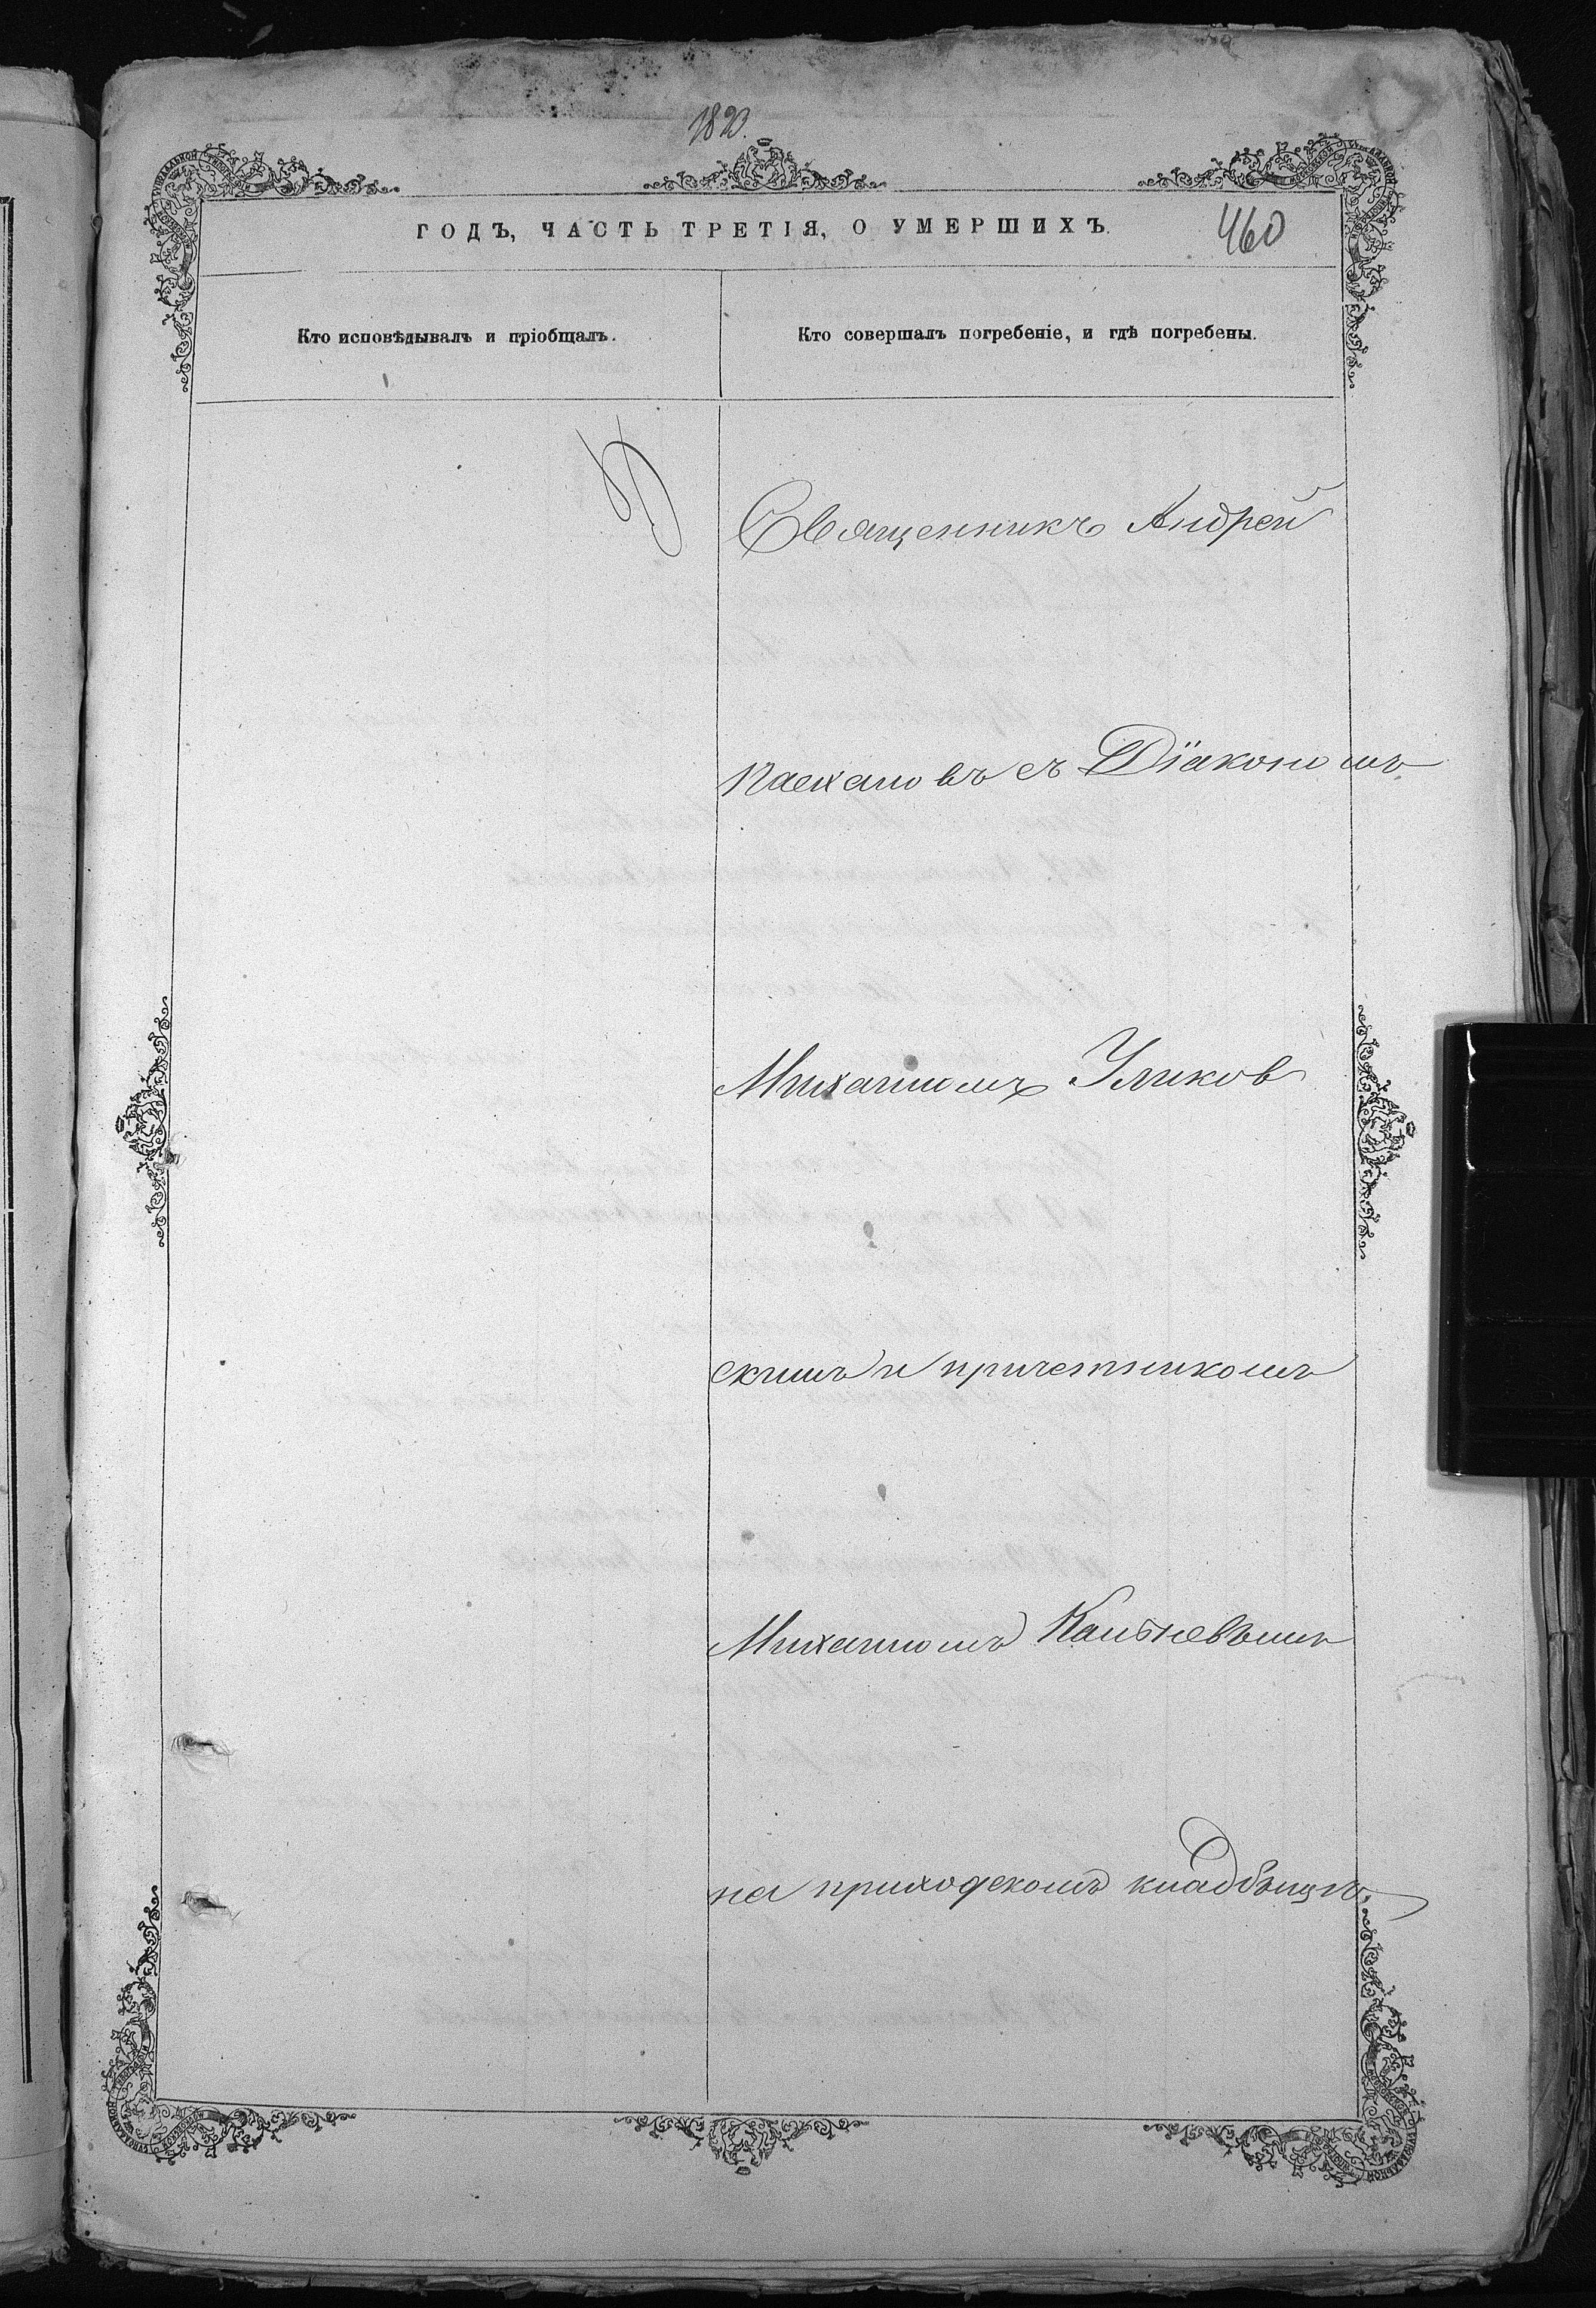 1890.
ГОДЪ, ЧАСТЬ ТРЕТІЯ, О УМЕРШИХЪ.
460
Кто исповѣдывалъ и пріобщалъ.
Кто совершалъ погребеніе, и гдѣ погребены.
Священникъ Андрей
съ Діакономъ
Михаиломъ Уликов
скимъ и причетникомъ
Михаиломъ
на приходскомъ кладбищѣ.